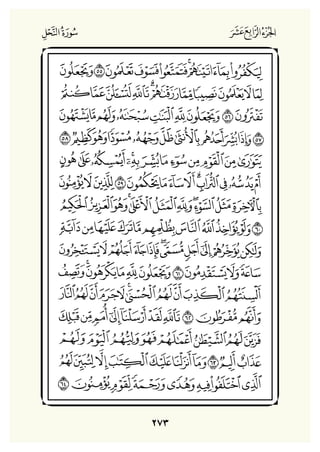 سُورَةُ النَّحْلِ الجُزْءُ الرَّابِعَ عَشَرَ
لِيَكْفُرُوا۟ بِمَآ ءَاتَيْنَٰهُمْ ۚ فَتَمَتَّعُوا۟ ۖ فَسَوْفَ تَعْلَمُونَ ٥٥ وَيَجْعَلُونَ
لِمَا لَا يَعْلَمُونَ نَصِيبًا مِّمَّا رَزَقْنَٰهُمْ ۗ تَٱللَّهِ لَتُسْـَٔلُنَّ عَمَّا كُنتُمْ
تَفْتَرُونَ ٥٦ وَيَجْعَلُونَ لِلَّهِ ٱلْبَنَٰتِ سُبْحَٰنَهُۥ ۙ وَلَهُم مَّا يَشْتَهُونَ
٥٧ وَإِذَا بُشِّرَ أَحَدُهُم بِٱلْأُنثَىٰ ظَلَّ وَجْهُهُۥ مُسْوَدًّا وَهُوَ كَظِيمٌ ٥٨
يَتَوَٰرَىٰ مِنَ ٱلْقَوْمِ مِن سُوٓءِ مَا بُشِّرَ بِهِۦٓ ۚ أَيُمْسِكُهُۥ عَلَىٰ هُونٍ
أَمْ يَدُسُّهُۥ فِى ٱلتُّرَابِ ۗ أَلَا سَآءَ مَا يَحْكُمُونَ ٥٩ لِلَّذِينَ لَا يُؤْمِنُونَ
بِٱلْـَٔاخِرَةِ مَثَلُ ٱلسَّوْءِ ۖ وَلِلَّهِ ٱلْمَثَلُ ٱلْأَعْلَىٰ ۚ وَهُوَ ٱلْعَزِيزُ ٱلْحَكِيمُ
٦٠ وَلَوْ يُؤَاخِذُ ٱللَّهُ ٱلنَّاسَ بِظُلْمِهِم مَّا تَرَكَ عَلَيْهَا مِن دَآبَّةٍ
وَلَٰكِن يُؤَخِّرُهُمْ إِلَىٰٓ أَجَلٍ مُّسَمًّى ۖ فَإِذَا جَآءَ أَجَلُهُمْ لَا يَسْتَـْٔخِرُونَ
سَاعَةً ۖ وَلَا يَسْتَقْدِمُونَ ٦١ وَيَجْعَلُونَ لِلَّهِ مَا يَكْرَهُونَ وَتَصِفُ
أَلْسِنَتُهُمُ ٱلْكَذِبَ أَنَّ لَهُمُ ٱلْحُسْنَىٰ ۖ لَا جَرَمَ أَنَّ لَهُمُ ٱلنَّارَ
وَأَنَّهُم مُّفْرَطُونَ ٦٢ تَٱللَّهِ لَقَدْ أَرْسَلْنَآ إِلَىٰٓ أُمَمٍ مِّن قَبْلِكَ
فَزَيَّنَ لَهُمُ ٱلشَّيْطَٰنُ أَعْمَٰلَهُمْ فَهُوَ وَلِيُّهُمُ ٱلْيَوْمَ وَلَهُمْ
عَذَابٌ أَلِيمٌ ٦٣ وَمَآ أَنزَلْنَا عَلَيْكَ ٱلْكِتَٰبَ إِلَّا لِتُبَيِّنَ لَهُمُ
ٱلَّذِى ٱخْتَلَفُوا۟ فِيهِ ۙ وَهُدًى وَرَحْمَةً لِّقَوْمٍ يُؤْمِنُونَ ٦٤
٢٧٣